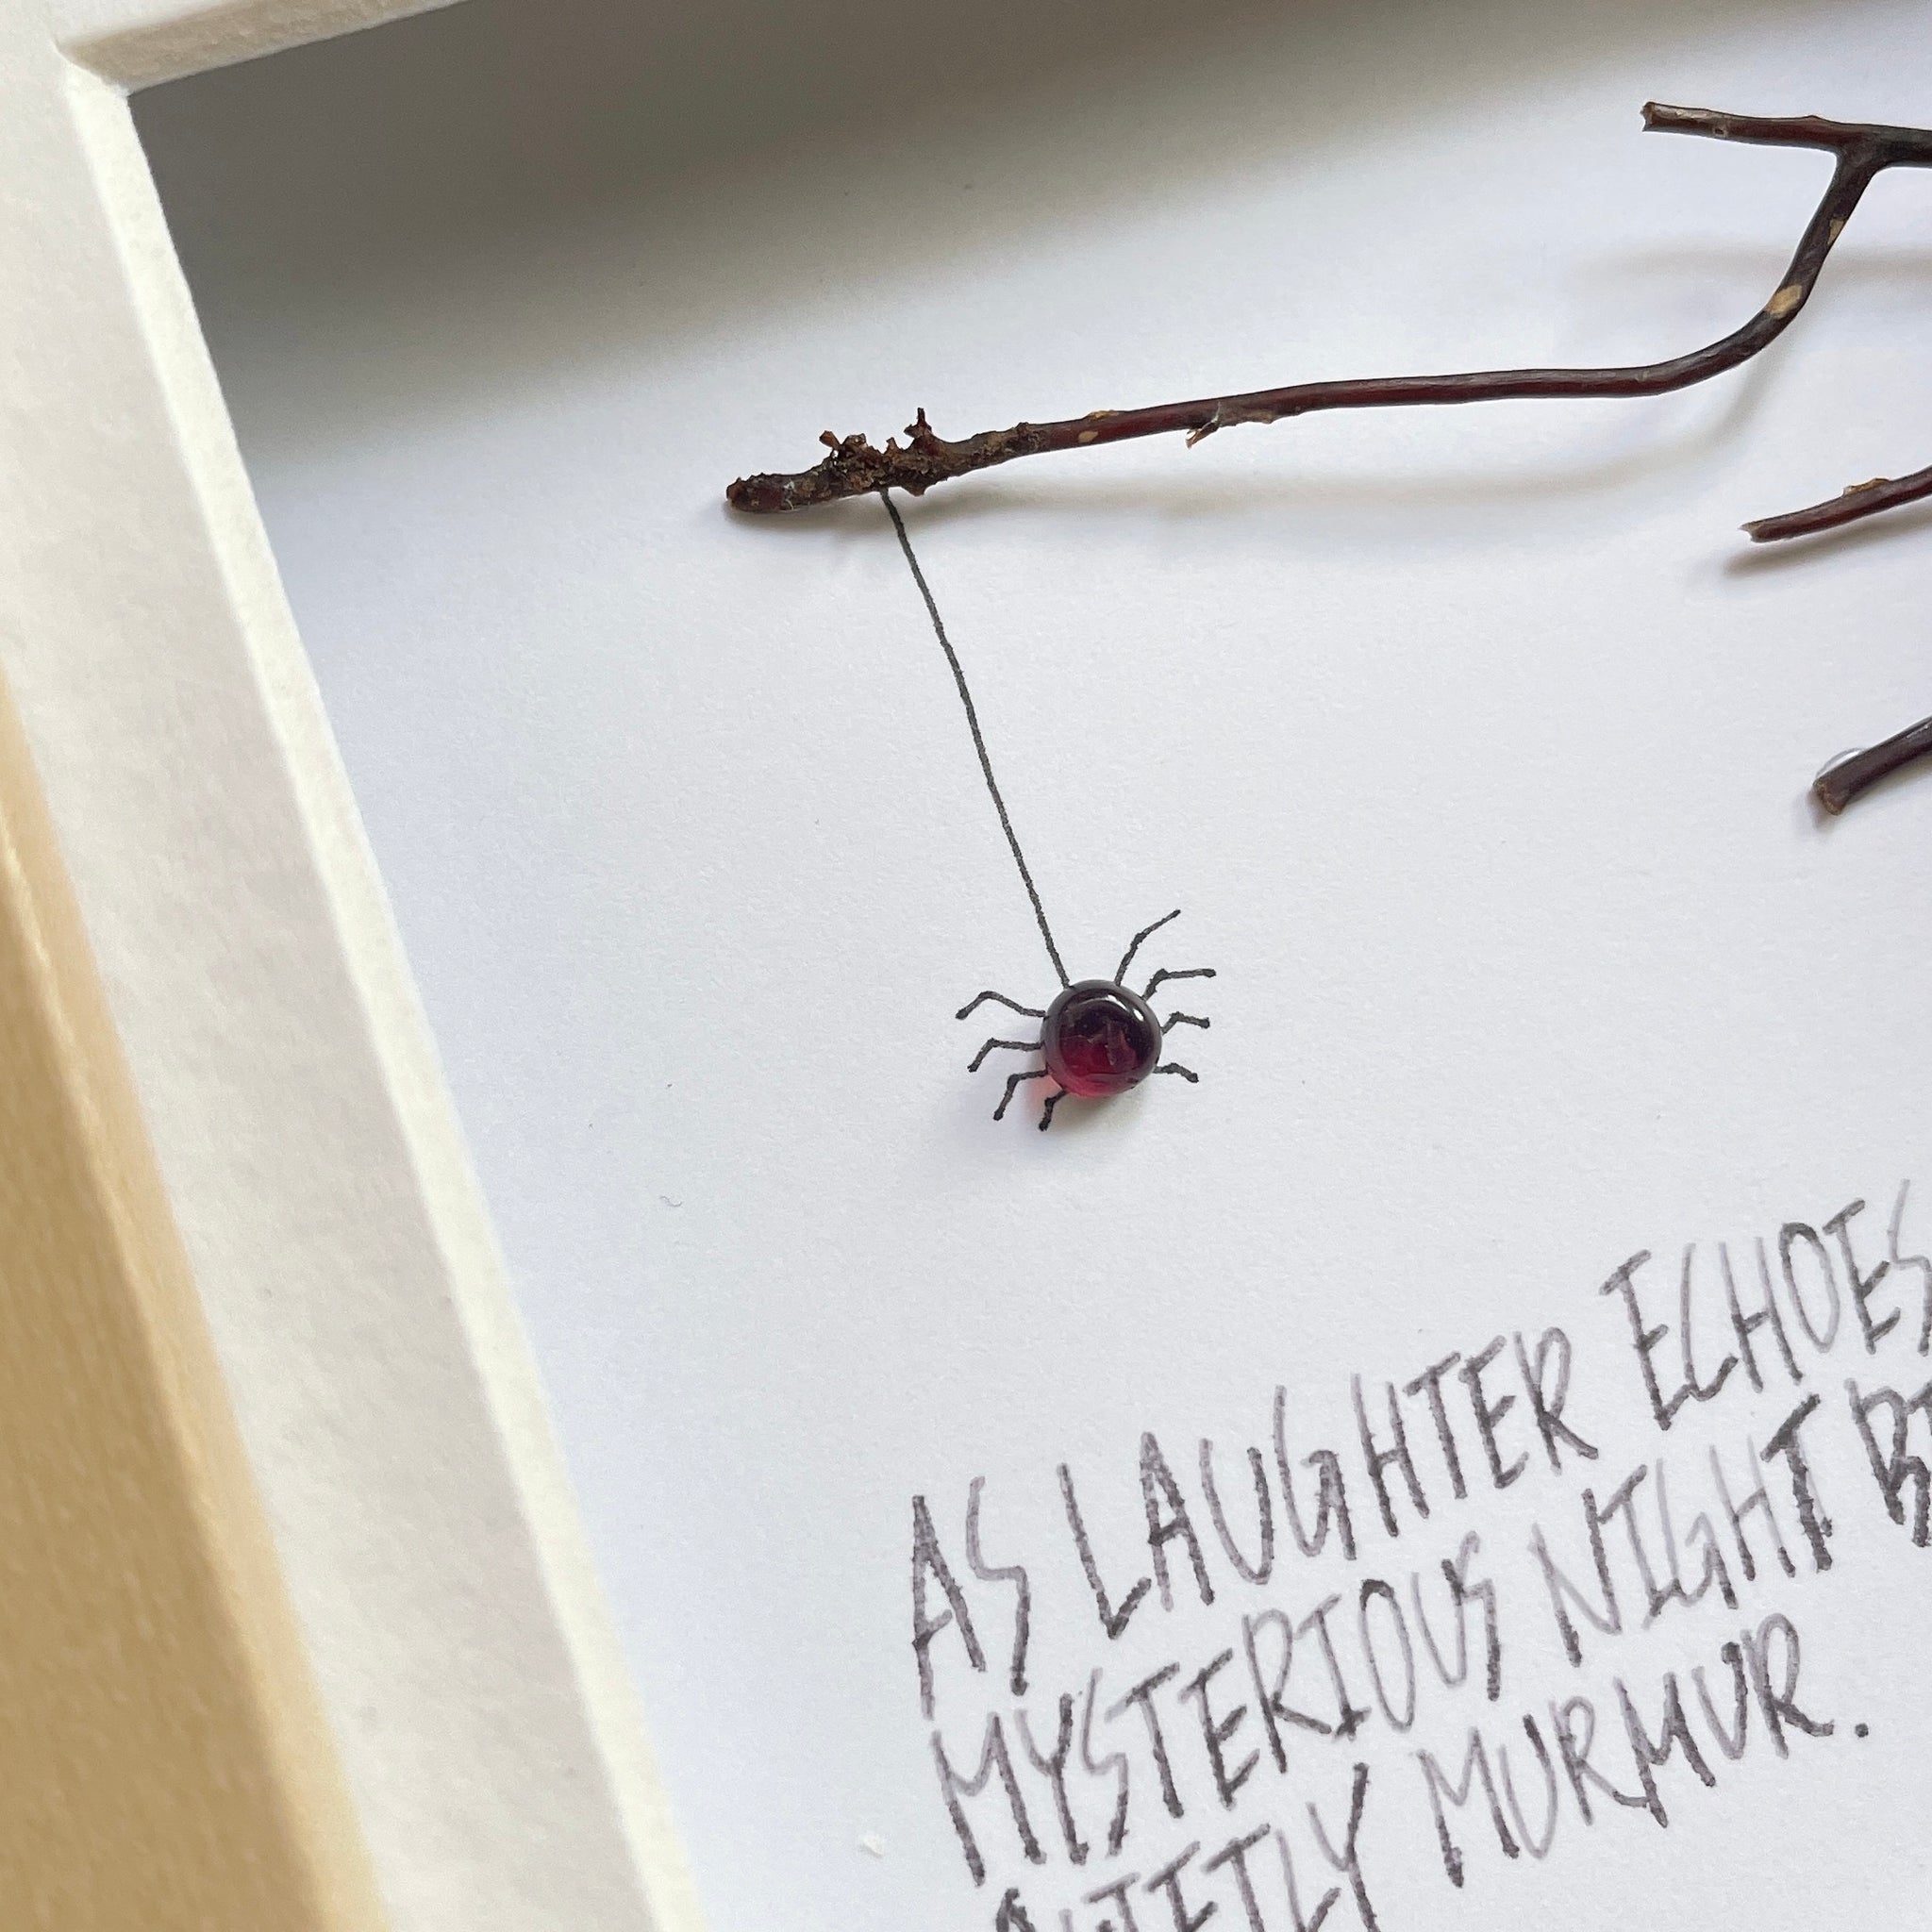 AS LAUGHTER ECHOES
MYSTERIOUS NIGHT
QUIETLY MURMUR.